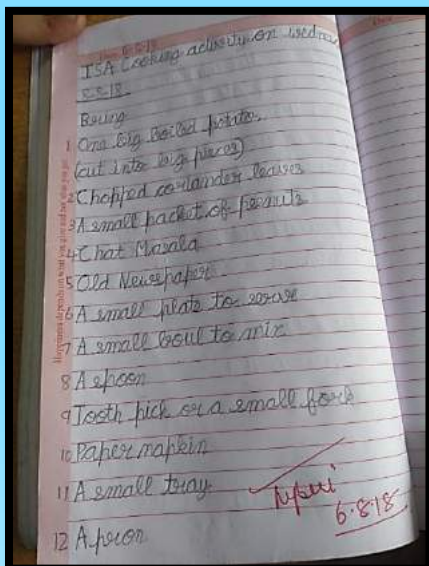 Date 6-8-18
ISA Cooking activity on wednes
8.8.18.
Bring
1 One big boiled potato.
(cut into big pieces)
2 Chopped coriander leaves
3 A small packet of peanuts
4 Chat Masala
5 Old Newspaper
6 A small plate to serve
7 A small boul to mix
8 A spoon
9 Tooth pick or a small fork
10 Paper napkin
11 A small tray
12 Apron
6.8.18